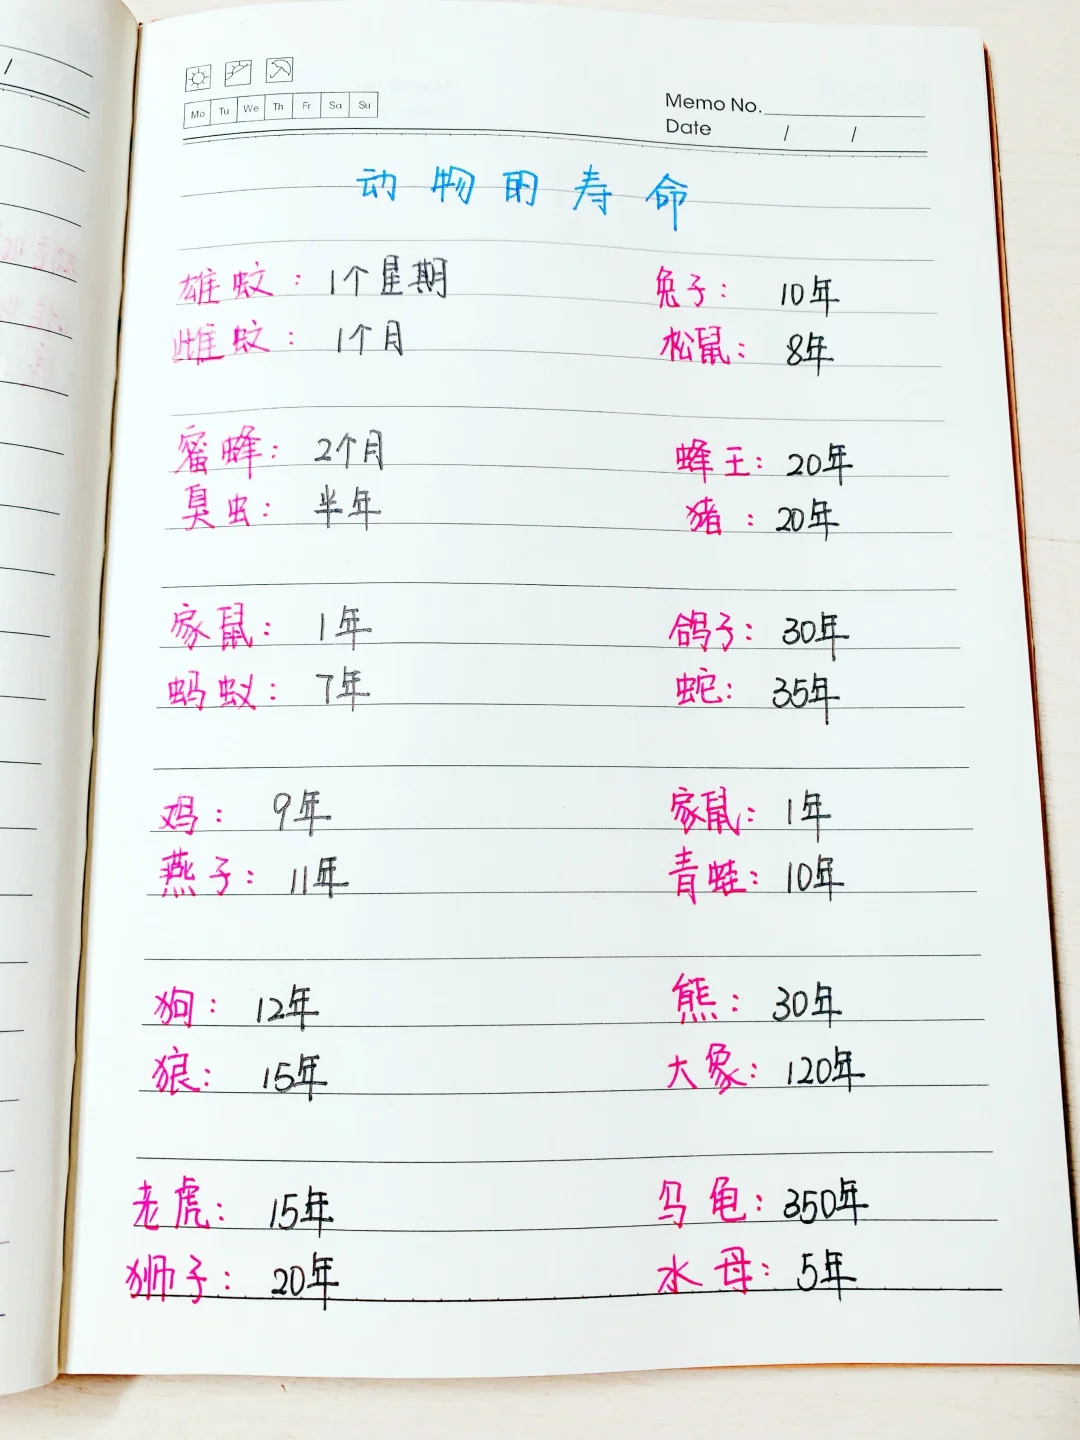 Mo Tu We Th Fr Sa Su
Memo No.
Date / /
动物的寿命
雄蚊：1个星期 兔子：10年
雌蚊：1个月 松鼠：8年
蜜蜂：2个月 蜂王：20年
臭虫：半年 猪：20年
家鼠：1年 鸽子：30年
蚂蚁：7年 蛇：35年
鸡：9年 家鼠：1年
燕子：11年 青蛙：10年
狗：12年 熊：30年
狼：15年 大象：120年
老虎：15年 乌龟：350年
狮子：20年 水母：5年